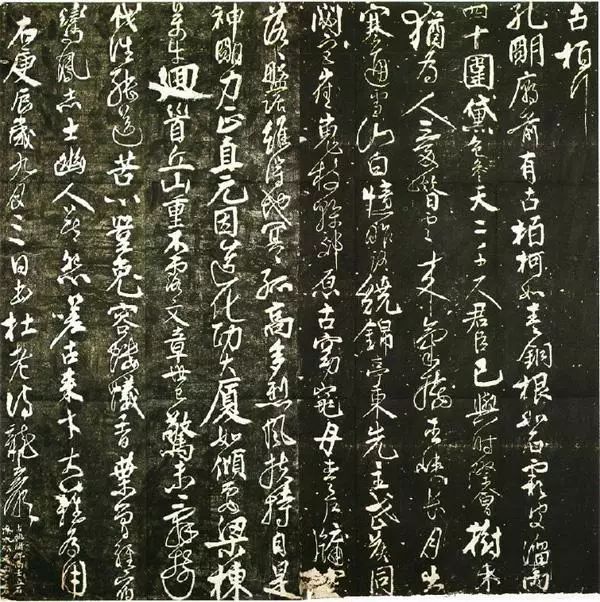 古柏行
孔明廟前有古柏柯如青銅根如石霜皮溜雨
四十圍黛色參天二千尺君臣已與時際會樹木
猶為人愛惜雲來氣接巫峽長月出
寒通雪山白憶昨路繞錦亭東先主武侯同
閟宮崔嵬枝幹郊原古窈窕丹青戶牖空
落落盤踞雖得地冥冥孤高多烈風扶持自是
神明力正直元因造化功大廈如傾要梁棟
萬牛迴首丘山重不露文章世已驚未辭剪
伐誰能送苦心豈免容螻蟻香葉曾經宿
鸞鳳志士幽人莫怨嗟古來材大難為用
右庚辰歲九月三日書杜老詩龍巖